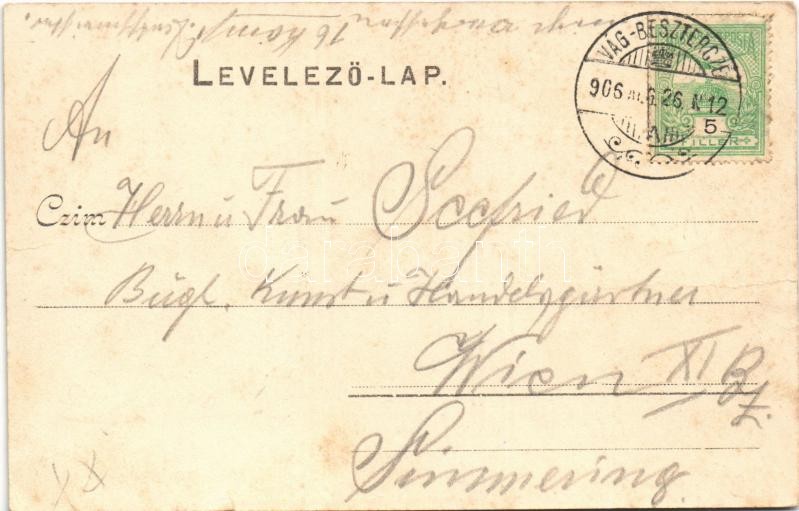 LEVELEZŐ-LAP.
VÁG-BESZTERCZE
906 AUG. 26. N 12
5
FILLER
An
Czim Herrn u Frau Seefried
Bügl. Kunst u Handelsgärtner
Wien XI Bz.
Simmering.
darabanth